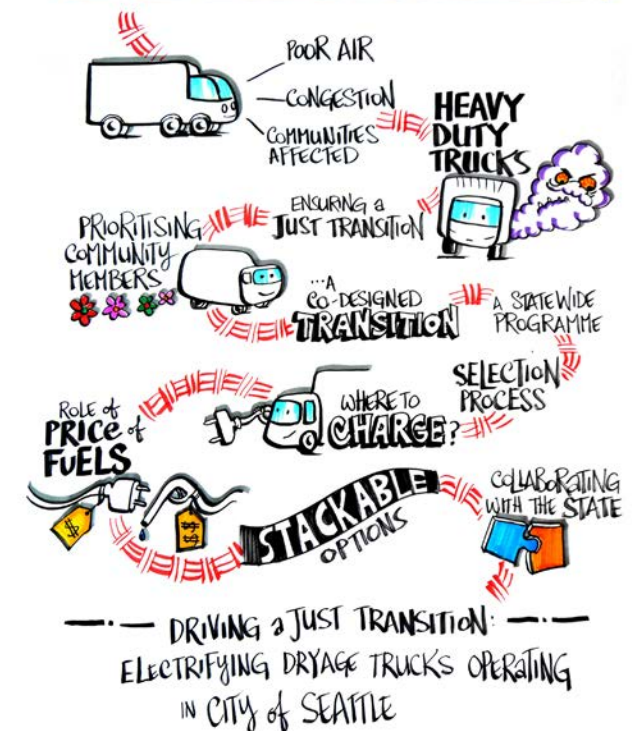 POOR AIR
CONGESTION
COMMUNITIES
AFFECTED
HEAVY
DUTY
TRUCKS
ENSURING a
JUST TRANSITION
PRIORITISING
COMMUNITY
MEMBERS
...A
CO-DESIGNED
TRANSITION
A STATEWIDE
PROGRAMME
SELECTION
PROCESS
WHERE TO
CHARGE?
ROLE of
PRICE of
FUELS
$
$$
STACKABLE
OPTIONS
COLLABORATING
WITH THE STATE
DRIVING a JUST TRANSITION:
ELECTRIFYING DRYAGE TRUCKS OPERATING
IN CITY of SEATTLE